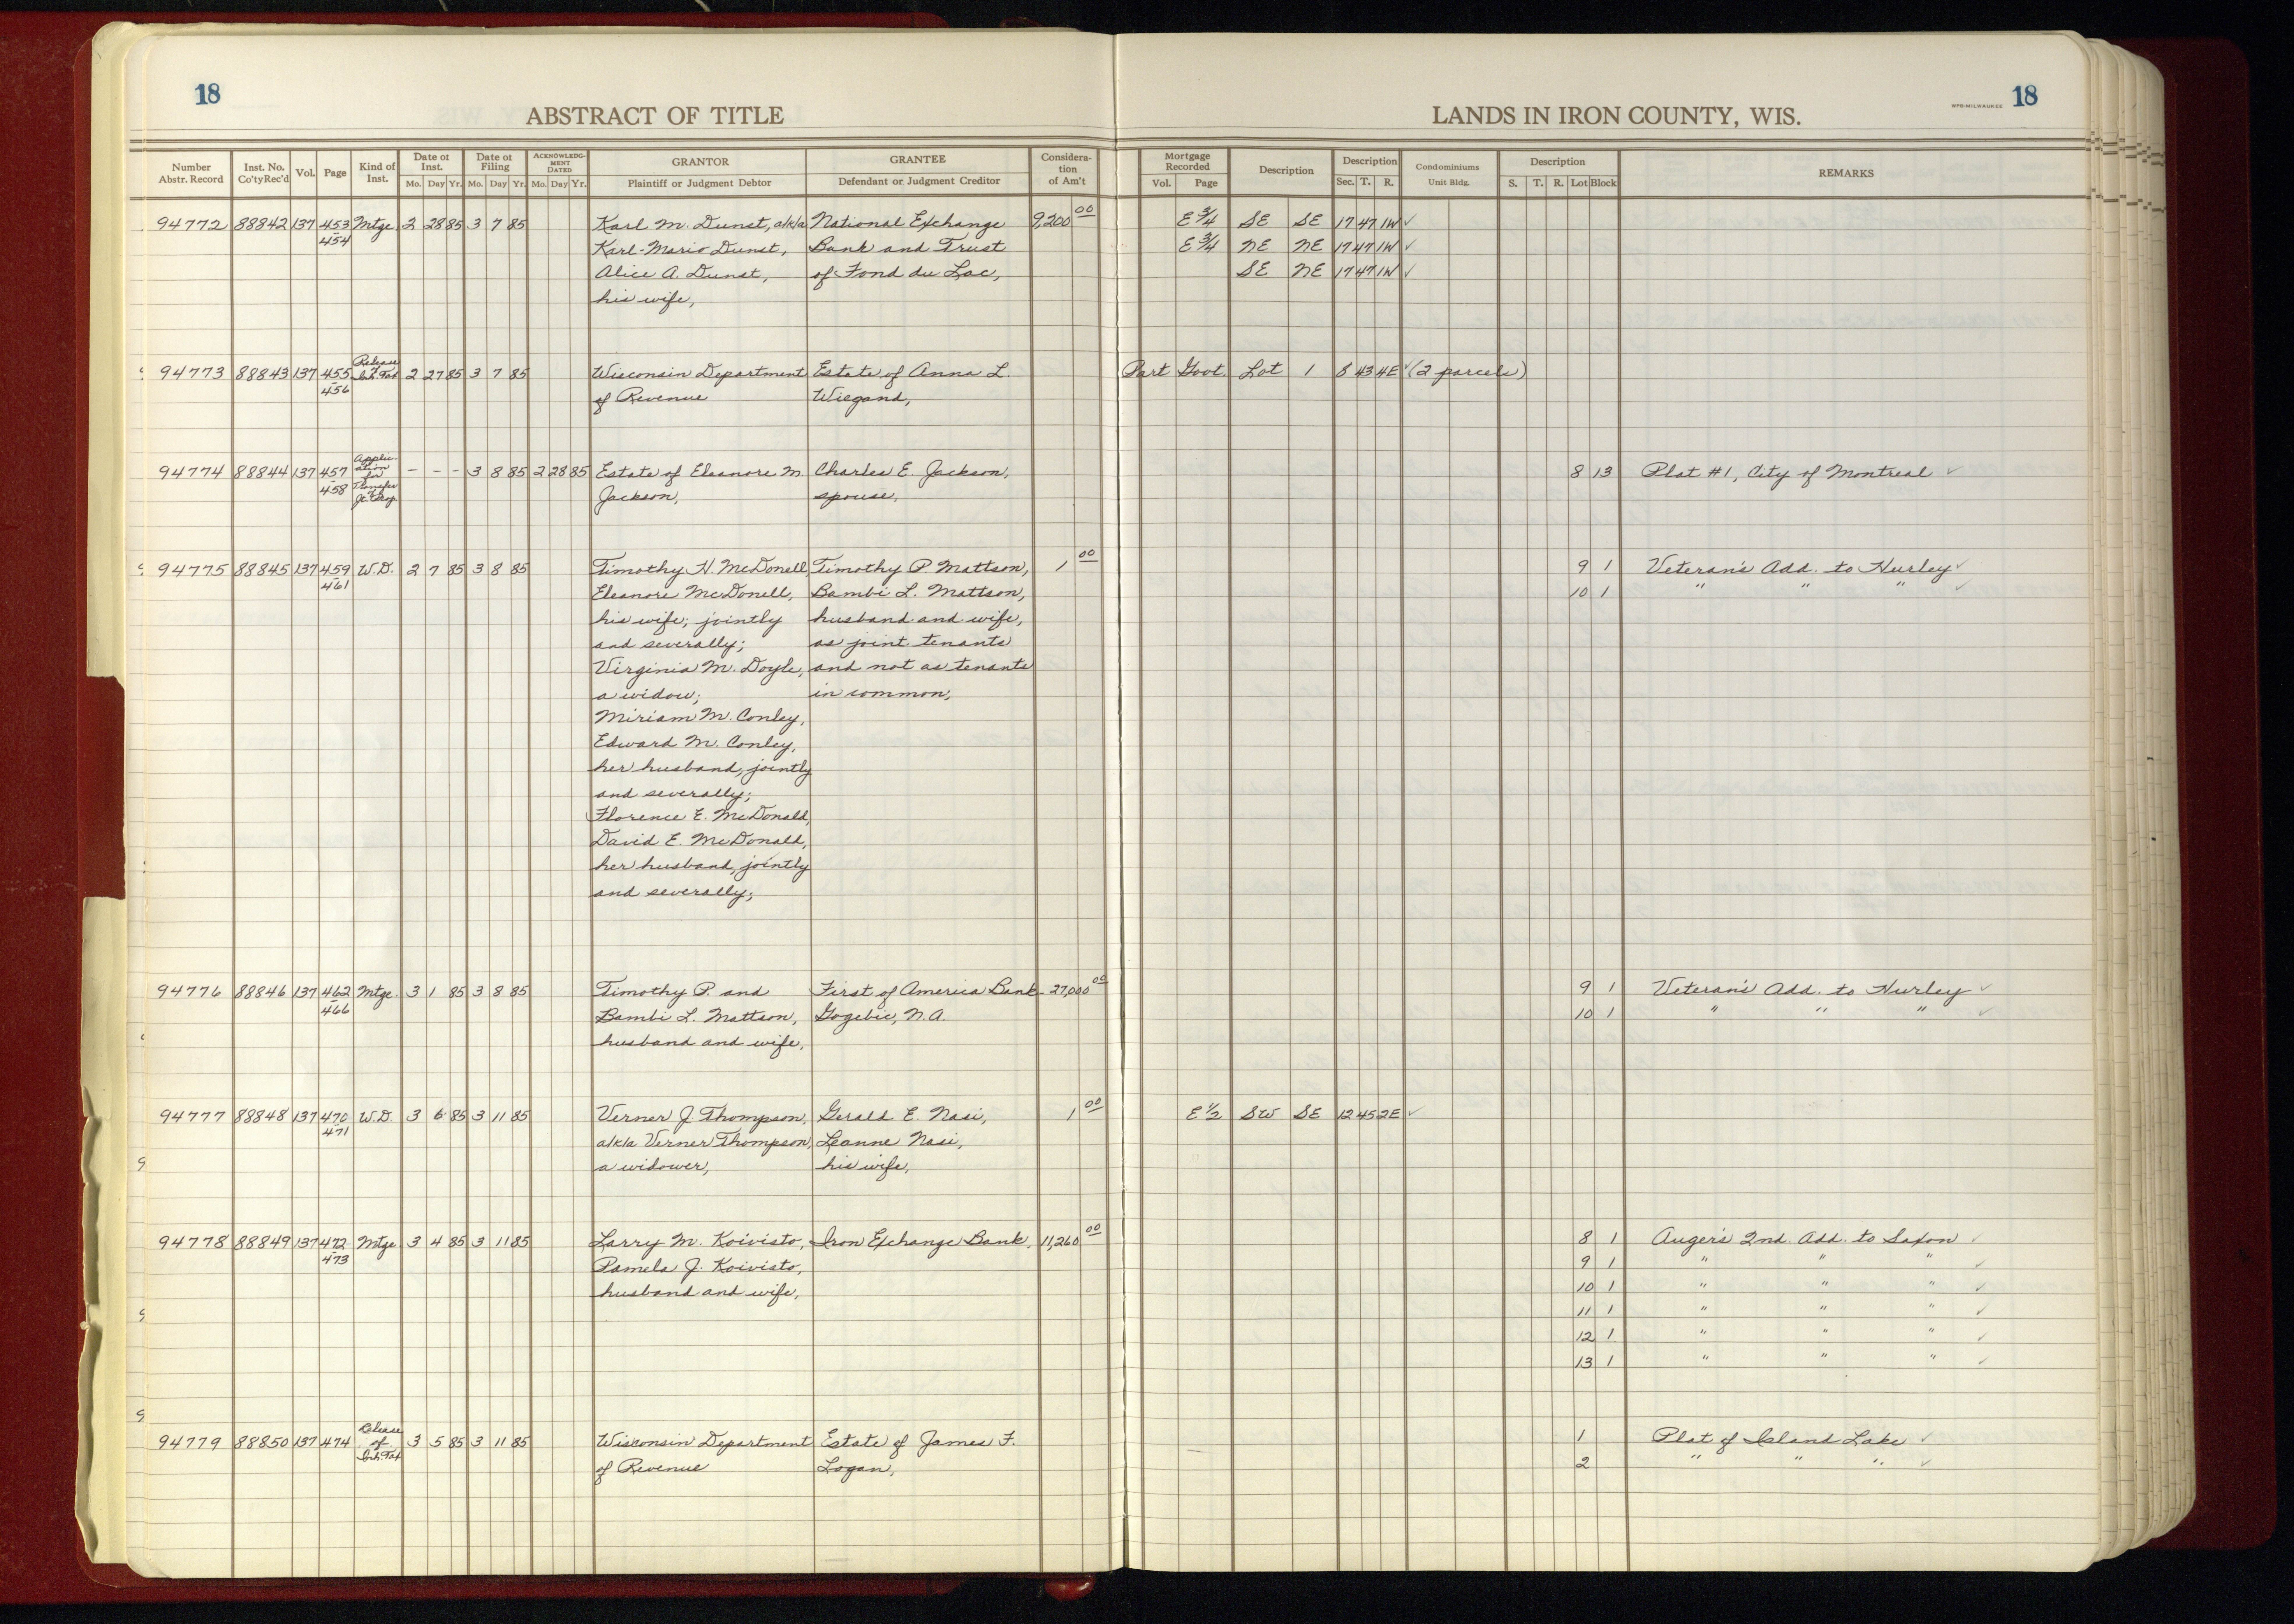 18
ABSTRACT OF TITLE
LANDS IN IRON COUNTY, WIS.
WPB-MILWAUKEE 18
Number Abstr. Record Inst. No. Co'ty Rec'd Vol. Page Kind of Inst. Date of Inst. Mo. Day Yr. Date of Filing Mo. Day Yr. ACKNOWLEDGMENT DATED Mo. Day Yr. GRANTOR Plaintiff or Judgment Debtor GRANTEE Defendant or Judgment Creditor Consideration of Am't Mortgage Recorded Vol. Page Description Description Sec. T. R. Condominiums Unit Bldg. Description S. T. R. Lot Block REMARKS
94772 88842 137 453 Mtge. 2 28 85 3 7 85 Karl M. Dunst, a/k/a National Exchange 9,200 00 E 3/4 SE SE 17 47 1W ✓
454 Karl-Mario Dunst, Bank and Trust E 3/4 NE NE 17 47 1W ✓
Alice A. Dunst, of Fond du Lac, SE NE 17 47 1W ✓
his wife,
94773 88843 137 455 Release of Inh. Tax 2 27 85 3 7 85 Wisconsin Department Estate of Anna L. Part Govt. Lot 1 8 43 4E ✓ (2 parcels)
456 of Revenue Wiegand,
94774 88844 137 457 Application for Transfer of Jt. Prop. - - - 3 8 85 2 28 85 Estate of Eleanore M. Charles E. Jackson, 8 13 Plat #1, City of Montreal ✓
458 Jackson, spouse,
94775 88845 137 459 W.D. 2 7 85 3 8 85 Timothy H. McDonell, Timothy P. Mattson, 1 00 9 1 Veteran's Add. to Hurley ✓
461 Eleanore McDonell, Bambi L. Mattson, 10 1 " " " ✓
his wife; jointly husband and wife,
and severally; as joint tenants
Virginia M. Doyle, and not as tenants
a widow; in common,
Miriam M. Conley,
Edward M. Conley,
her husband, jointly
and severally;
Florence E. McDonald,
David E. McDonald,
her husband, jointly
and severally;
94776 88846 137 462 Mtge. 3 1 85 3 8 85 Timothy P. and First of America Bank- 27,000 00 9 1 Veteran's Add. to Hurley ✓
466 Bambi L. Mattson, Gogebic, N.A. 10 1 " " " ✓
husband and wife,
94777 88848 137 470 W.D. 3 6 85 3 11 85 Verner J. Thompson, Gerald E. Nasi, 1 00 E 1/2 SW SE 12 45 2E ✓
471 a/k/a Verner Thompson, Leanne Nasi,
a widower, his wife,
94778 88849 137 472 Mtge. 3 4 85 3 11 85 Larry M. Koivisto, Iron Exchange Bank, 11,260 00 8 1 Auger's 2nd. Add. to Saxon ✓
473 Pamela J. Koivisto, 9 1 " " " ✓
husband and wife, 10 1 " " " ✓
11 1 " " " ✓
12 1 " " " ✓
13 1 " " " ✓
94779 88850 137 474 Release of Inh. Tax 3 5 85 3 11 85 Wisconsin Department Estate of James F. 1 Plat of Island Lake ✓
of Revenue Logan, 2 " " " ✓